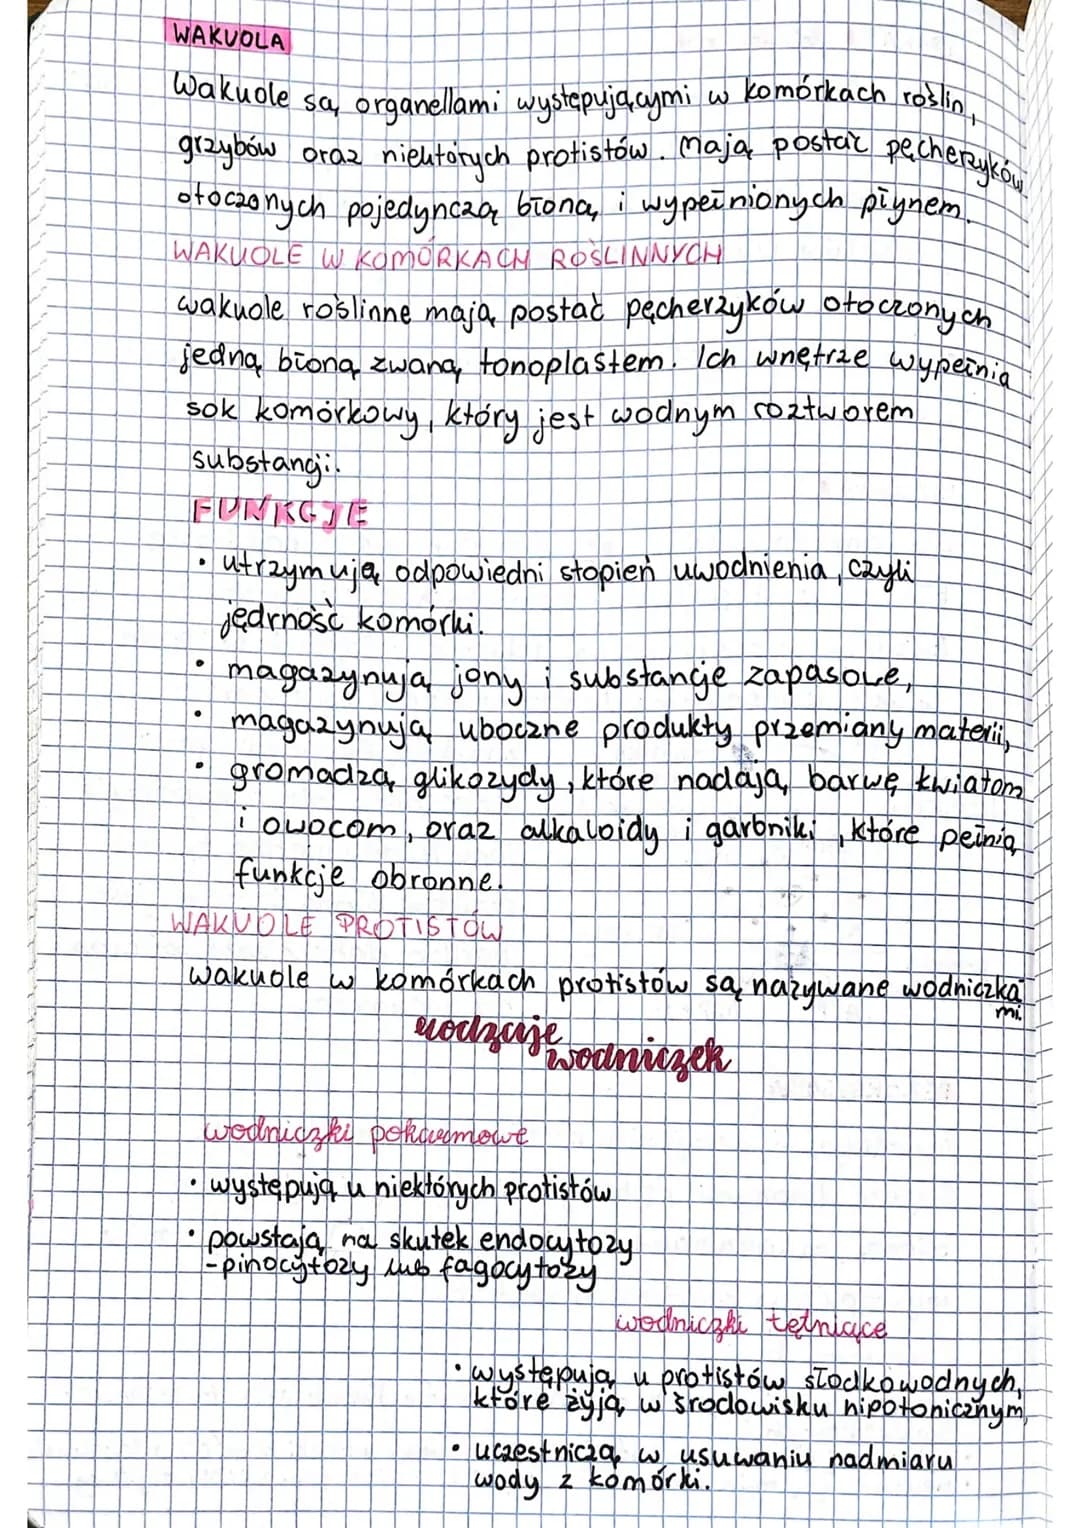 WAKUOLA
Wakuole są organellami występującymi w komórkach roślin,
grzybów oraz niektórych protistów. Mają postać pęcherzyków
otoczonych pojedynczą błoną i wypełnionych płynem.
WAKUOLE W KOMÓRKACH ROŚLINNYCH
wakuole roślinne mają postać pęcherzyków otoczonych
jedną błoną zwaną tonoplastem. Ich wnętrze wypełnia
sok komórkowy, który jest wodnym roztworem
substancji.
FUNKCJE
• utrzymują odpowiedni stopień uwodnienia, czyli
jędrność komórki.
• magazynują jony i substancje zapasowe,
• magazynują uboczne produkty przemiany materii,
• gromadzą glikozydy, które nadają barwę kwiatom
i owocom, oraz alkaloidy i garbniki, które pełnią
funkcje obronne.
WAKUOLE PROTISTÓW
wakuole w komórkach protistów są nazywane wodniczka
mi.
rodzaje
wodniczek
wodniczki pokarmowe
• występują u niektórych protistów
• powstają na skutek endocytozy
-pinocytozy lub fagocytozy
wodniczki tętniące
• występują u protistów słodkowodnych,
które żyją w środowisku hipotonicznym,
• uczestniczą w usuwaniu nadmiaru
wody z komórki.